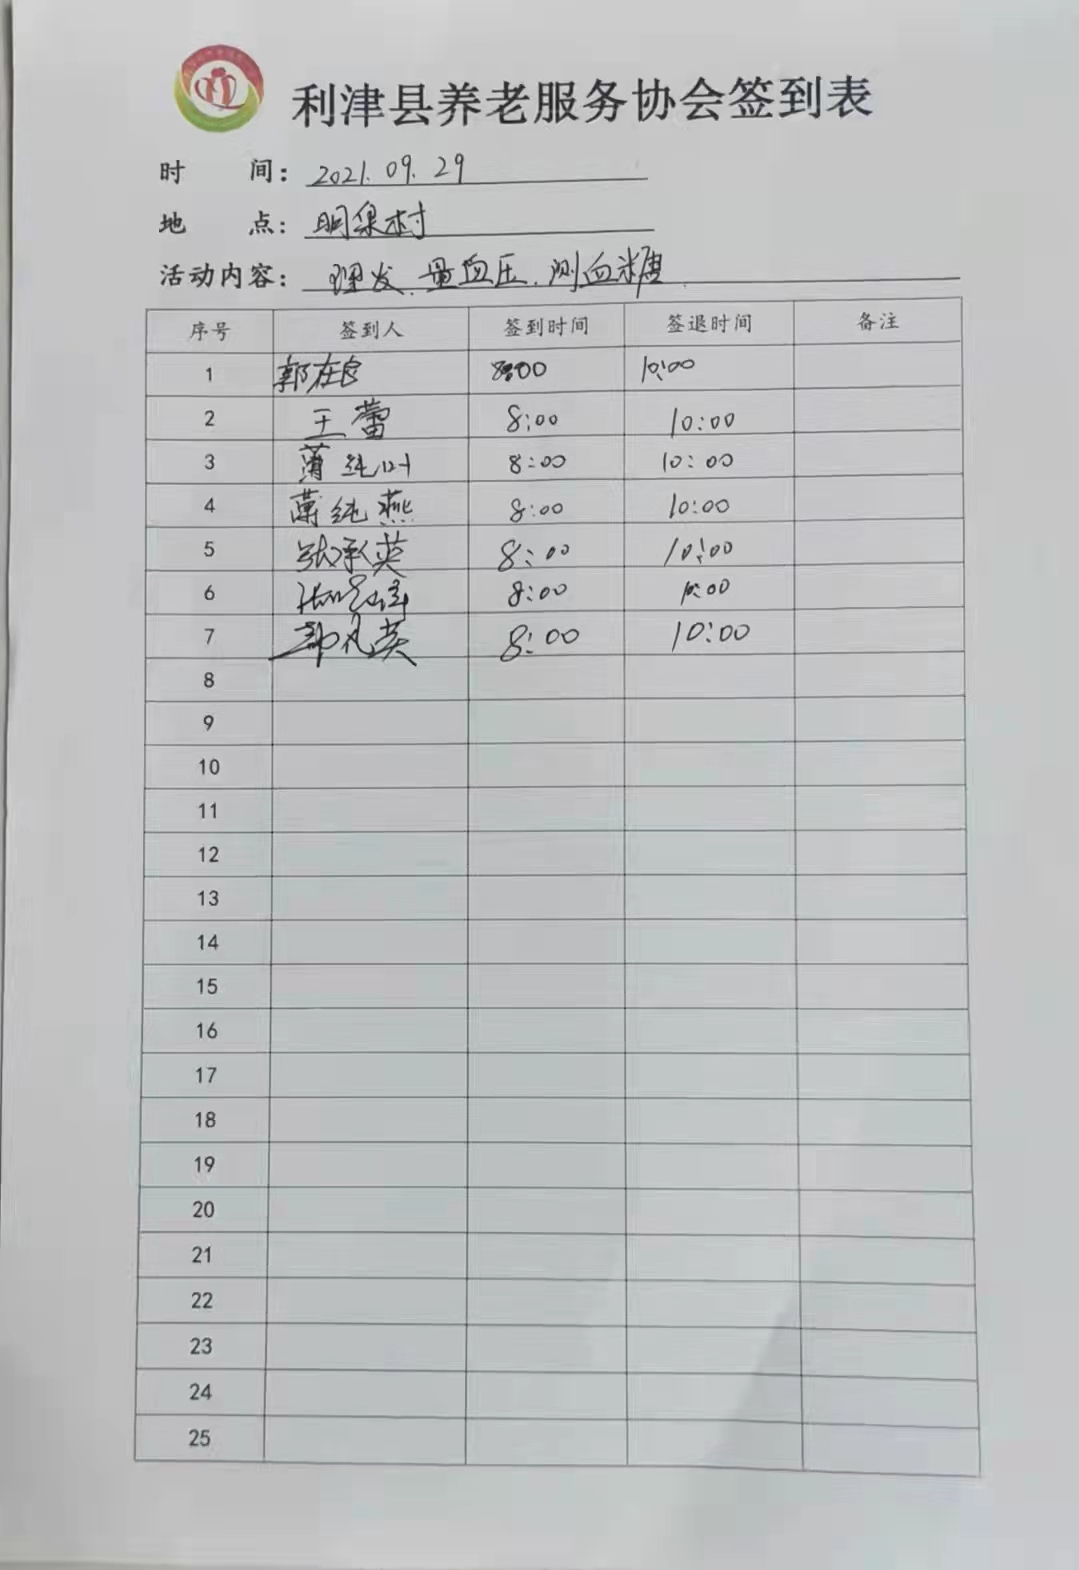 利津县养老服务协会签到表
时 间: 2021.09.29
地 点: 明集村
活动内容: 理发、量血压、测血糖
序号 签到人 签到时间 签退时间 备注
1 郭在良 8:00 10:00
2 王蕾 8:00 10:00
3 薄纯 8:00 10:00
4 薄纯燕 8:00 10:00
5 张承英 8:00 10:00
6 8:00 10:00
7 郭凡英 8:00 10:00
8
9
10
11
12
13
14
15
16
17
18
19
20
21
22
23
24
25